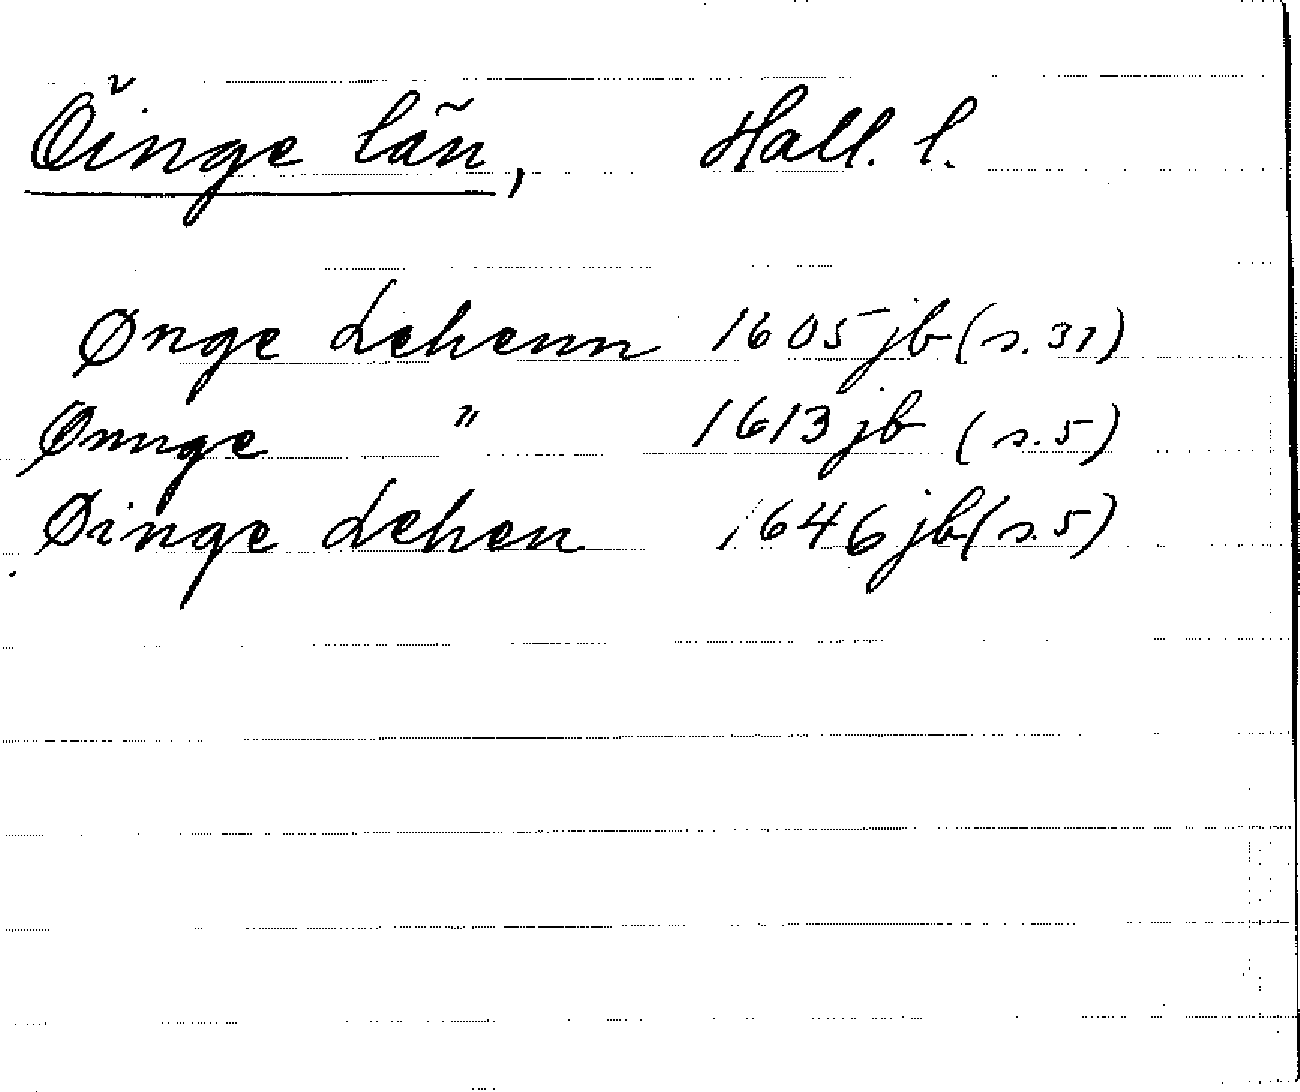 Öinge län, Hall. l.
Ønge Lehenn 1605 jb (s. 31)
Ønnge " 1613 jb (s. 5)
Øinge Lehen 1646 jb (s. 5)